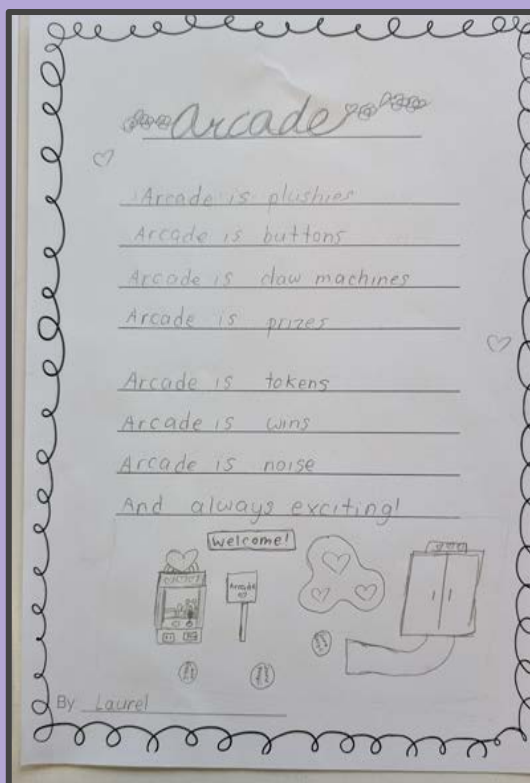 Arcade
Arcade is plushies
Arcade is buttons
Arcade is claw machines
Arcade is prizes
Arcade is tokens
Arcade is wins
Arcade is noise
And always exciting!
Welcome!
Arcade
By Laurel